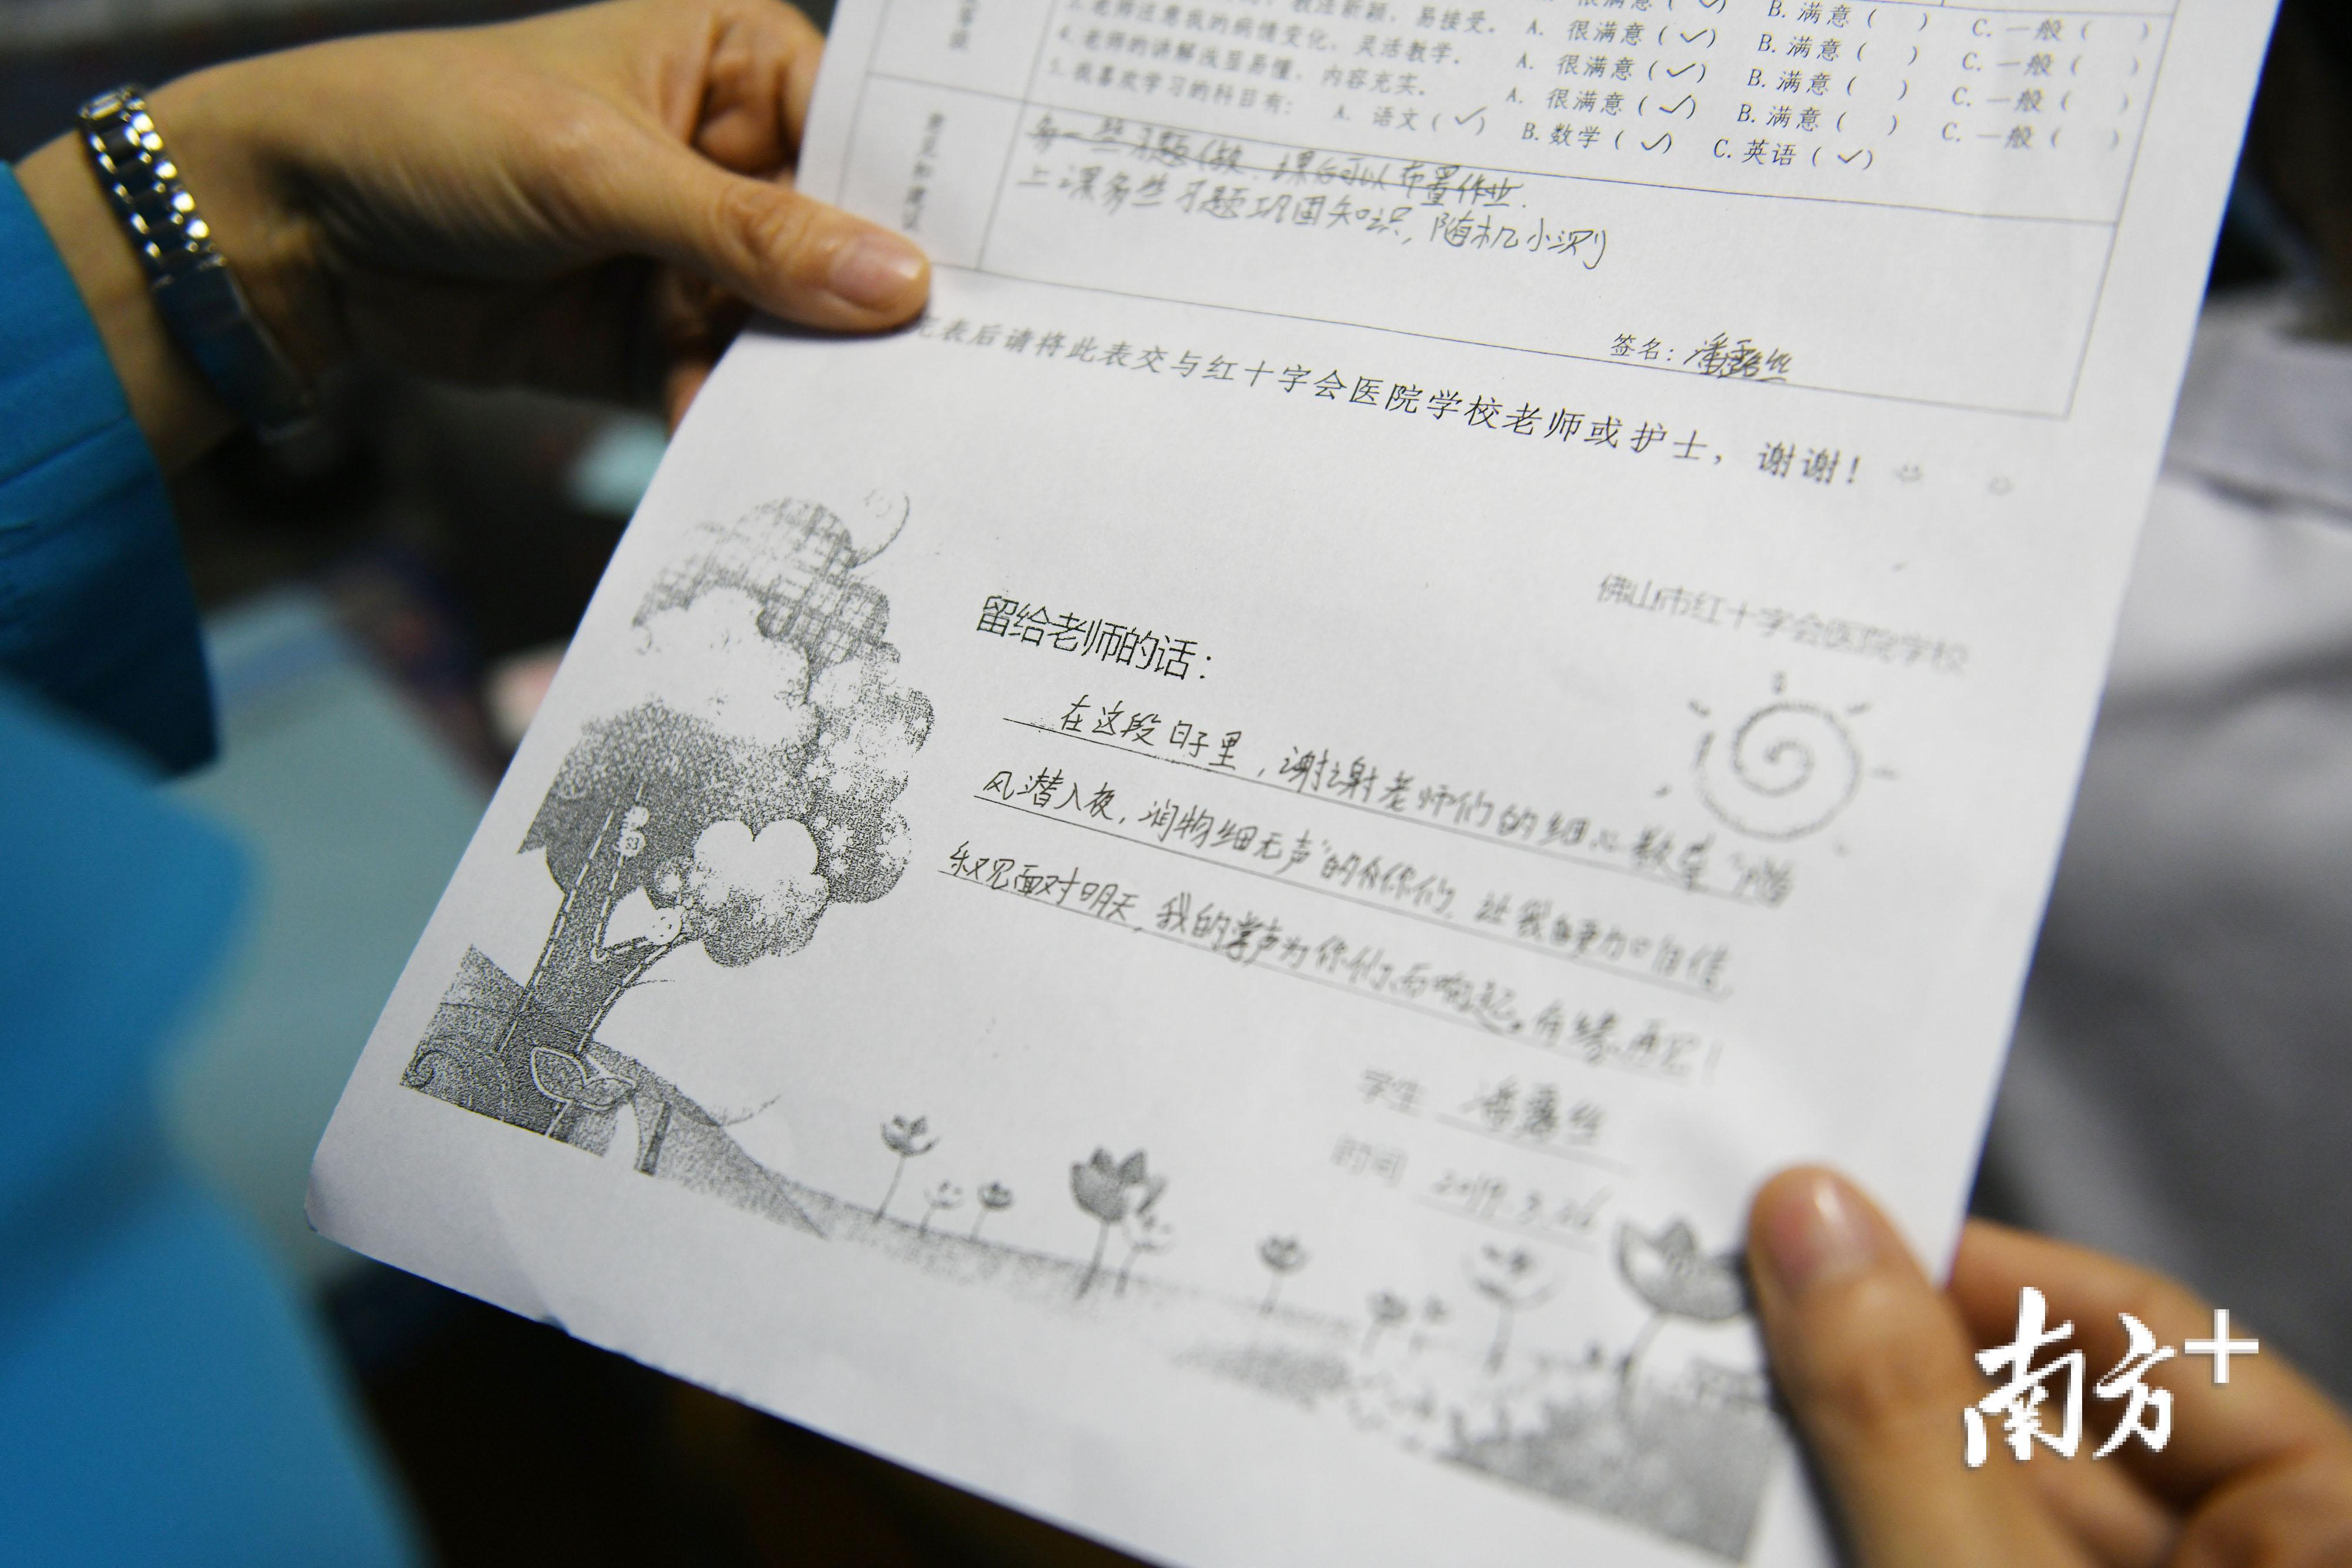 很满意（✓） B.满意（ ）
3.老师注意我的病情变化，灵活教学。 A. 很满意（✓） B.满意（ ） C.一般（ ）
4.老师的讲解浅显易懂，内容充实。 A. 很满意（✓） B.满意（ ） C.一般（ ）
A. 很满意（✓） B.满意（ ） C.一般（ ）
5.我喜欢学习的科目有： A. 语文（✓） B.数学（✓） C.英语（✓） C.一般（ ）
意见和建议
多一些习题做，课后可以布置作业.
上课多些习题巩固知识，随机小测
签名：潘露丝
表后请将此表交与红十字会医院学校老师或护士，谢谢！
佛山市红十字会医院学校
留给老师的话：
在这段日子里，谢谢老师们的细心教学“随
风潜入夜，润物细无声”的你们，让我更加自信
面对明天，我的掌声为你们而响起。有缘再见！
学生 潘露丝
时间 2019.3.26
南方+